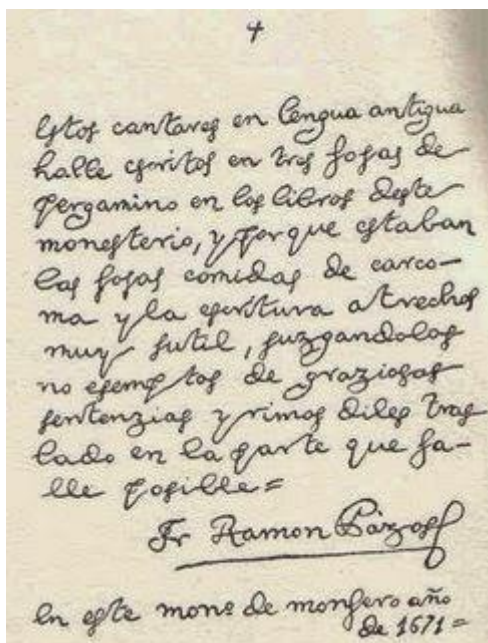 +
Estos cantares en lengua antigua
halle escritos en tres fojas de
pergamino en los libros deste
monesterio, y porque estaban
las fojas comidas de carco-
ma y la escritura a trechos
muy sutil, juzgandolos
no esemptos de graziosas
sentenzias y rimos diles tras
lado en la parte que fa-
lle posille=
Fr Ramon Pázos
En este monº de monfero año
de 1671=